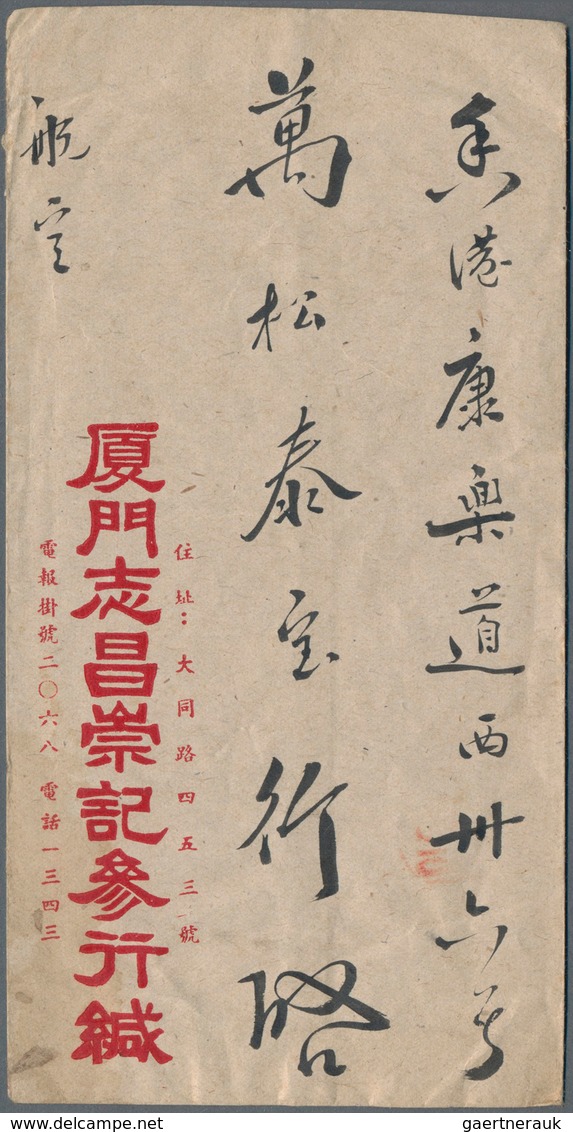 香港康樂道西卅六号
萬松泰宝行啓
住址：大同路四五三號
厦門志昌崇記參行緘
電報掛號二〇六八 電話一三四三
航空
gaertnerauk